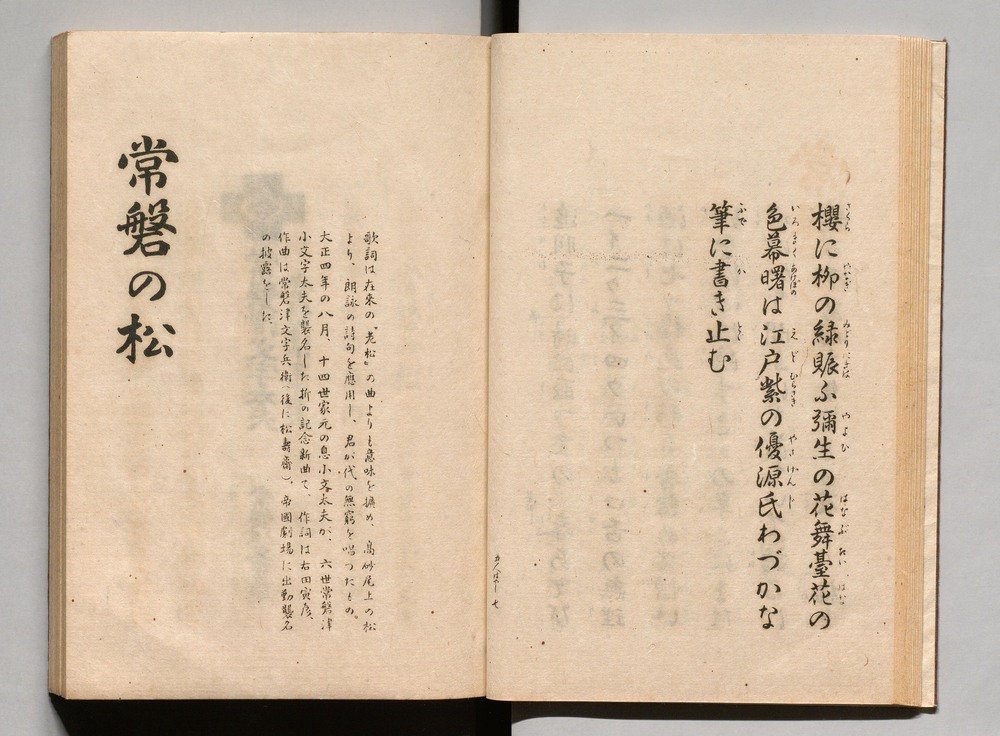 櫻に柳の緑賑ふ彌生の花舞臺花の
色幕曙は江戸紫の優源氏わづかな
筆に書き止む
歌詞は在來の『老松』の曲よりも意味を攝め、高砂尾上の松
より、朗詠の詩句を應用し、君が代の無窮を唱つたもの。
大正四年の八月、十四世家元の息小文太夫が、六世常磐津
小文字太夫を襲名した折の記念新曲で、作詞は右田寅彦、
作曲は常磐津文字兵衛(後に松壽齋)、帝國劇場に出勤襲名
の披露をした。
常磐の松